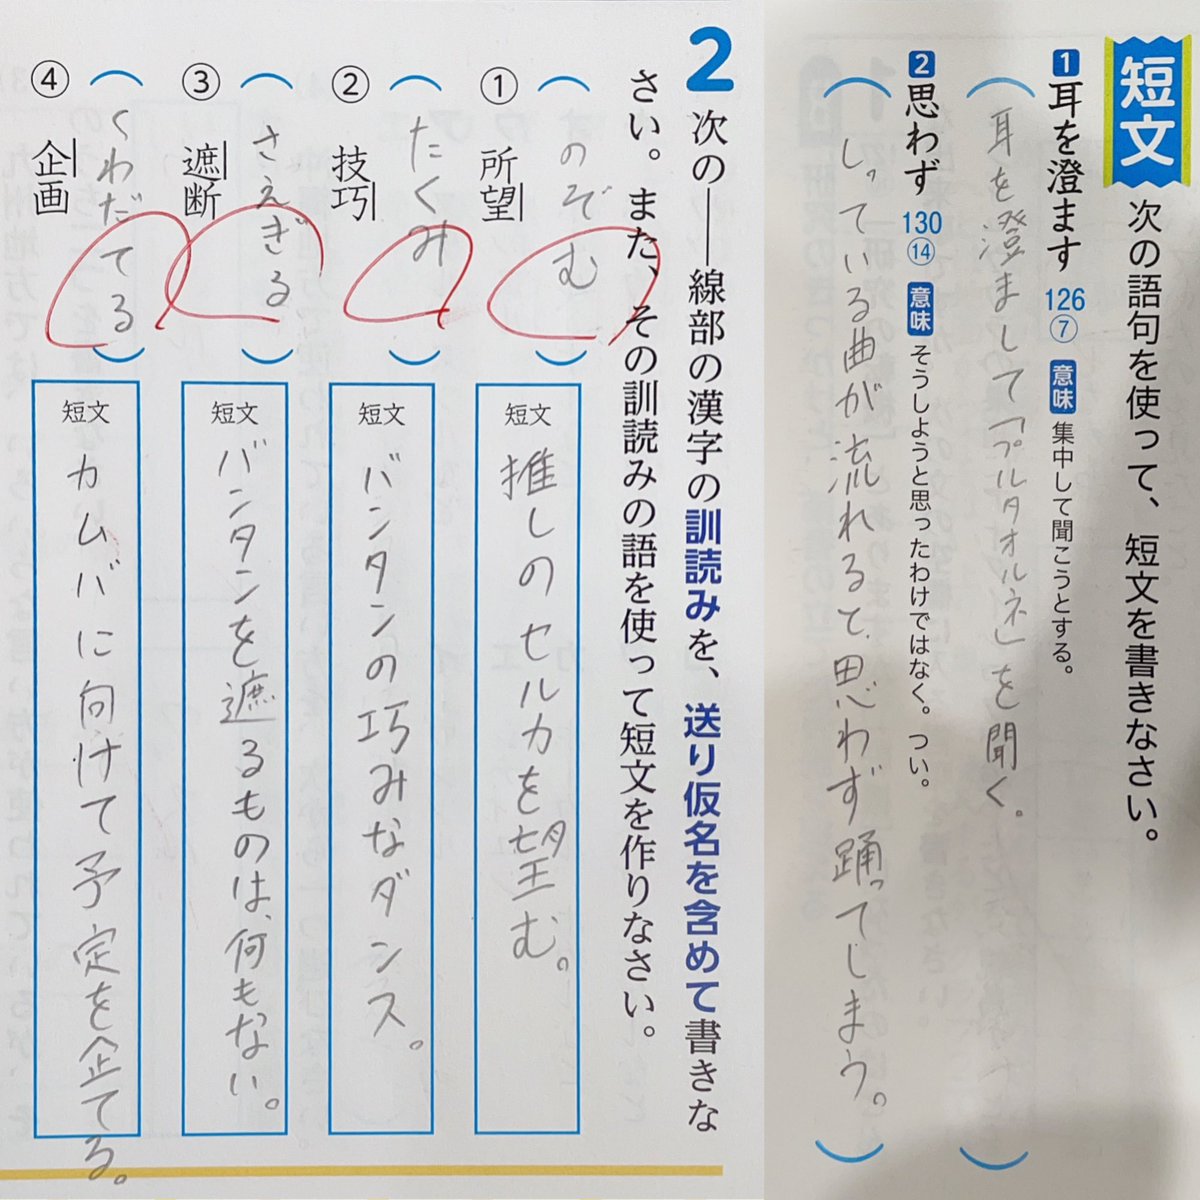 短文 次の語句を使って、短文を書きなさい。
1 耳を澄ます 126⑦ 意味 集中して聞こうとする。
(耳を澄まして「プルタオルネ」を聞く。)
2 思わず 130⑭ 意味 そうしようと思ったわけではなく。つい。
(しっている曲が流れると、思わず踊ってしまう。)
2 次の――線部の漢字の訓読みを、送り仮名を含めて書きな
さい。また、その訓読みの語を使って短文を作りなさい。
① 所望
(のぞむ)
短文 推しのセルカを望む。
② 技巧
(たくみ)
短文 バンタンの巧みなダンス。
③ 遮断
(さえぎる)
短文 バンタンを遮るものは、何もない。
④ 企画
(くわだてる)
短文 カムバに向けて予定を企てる。